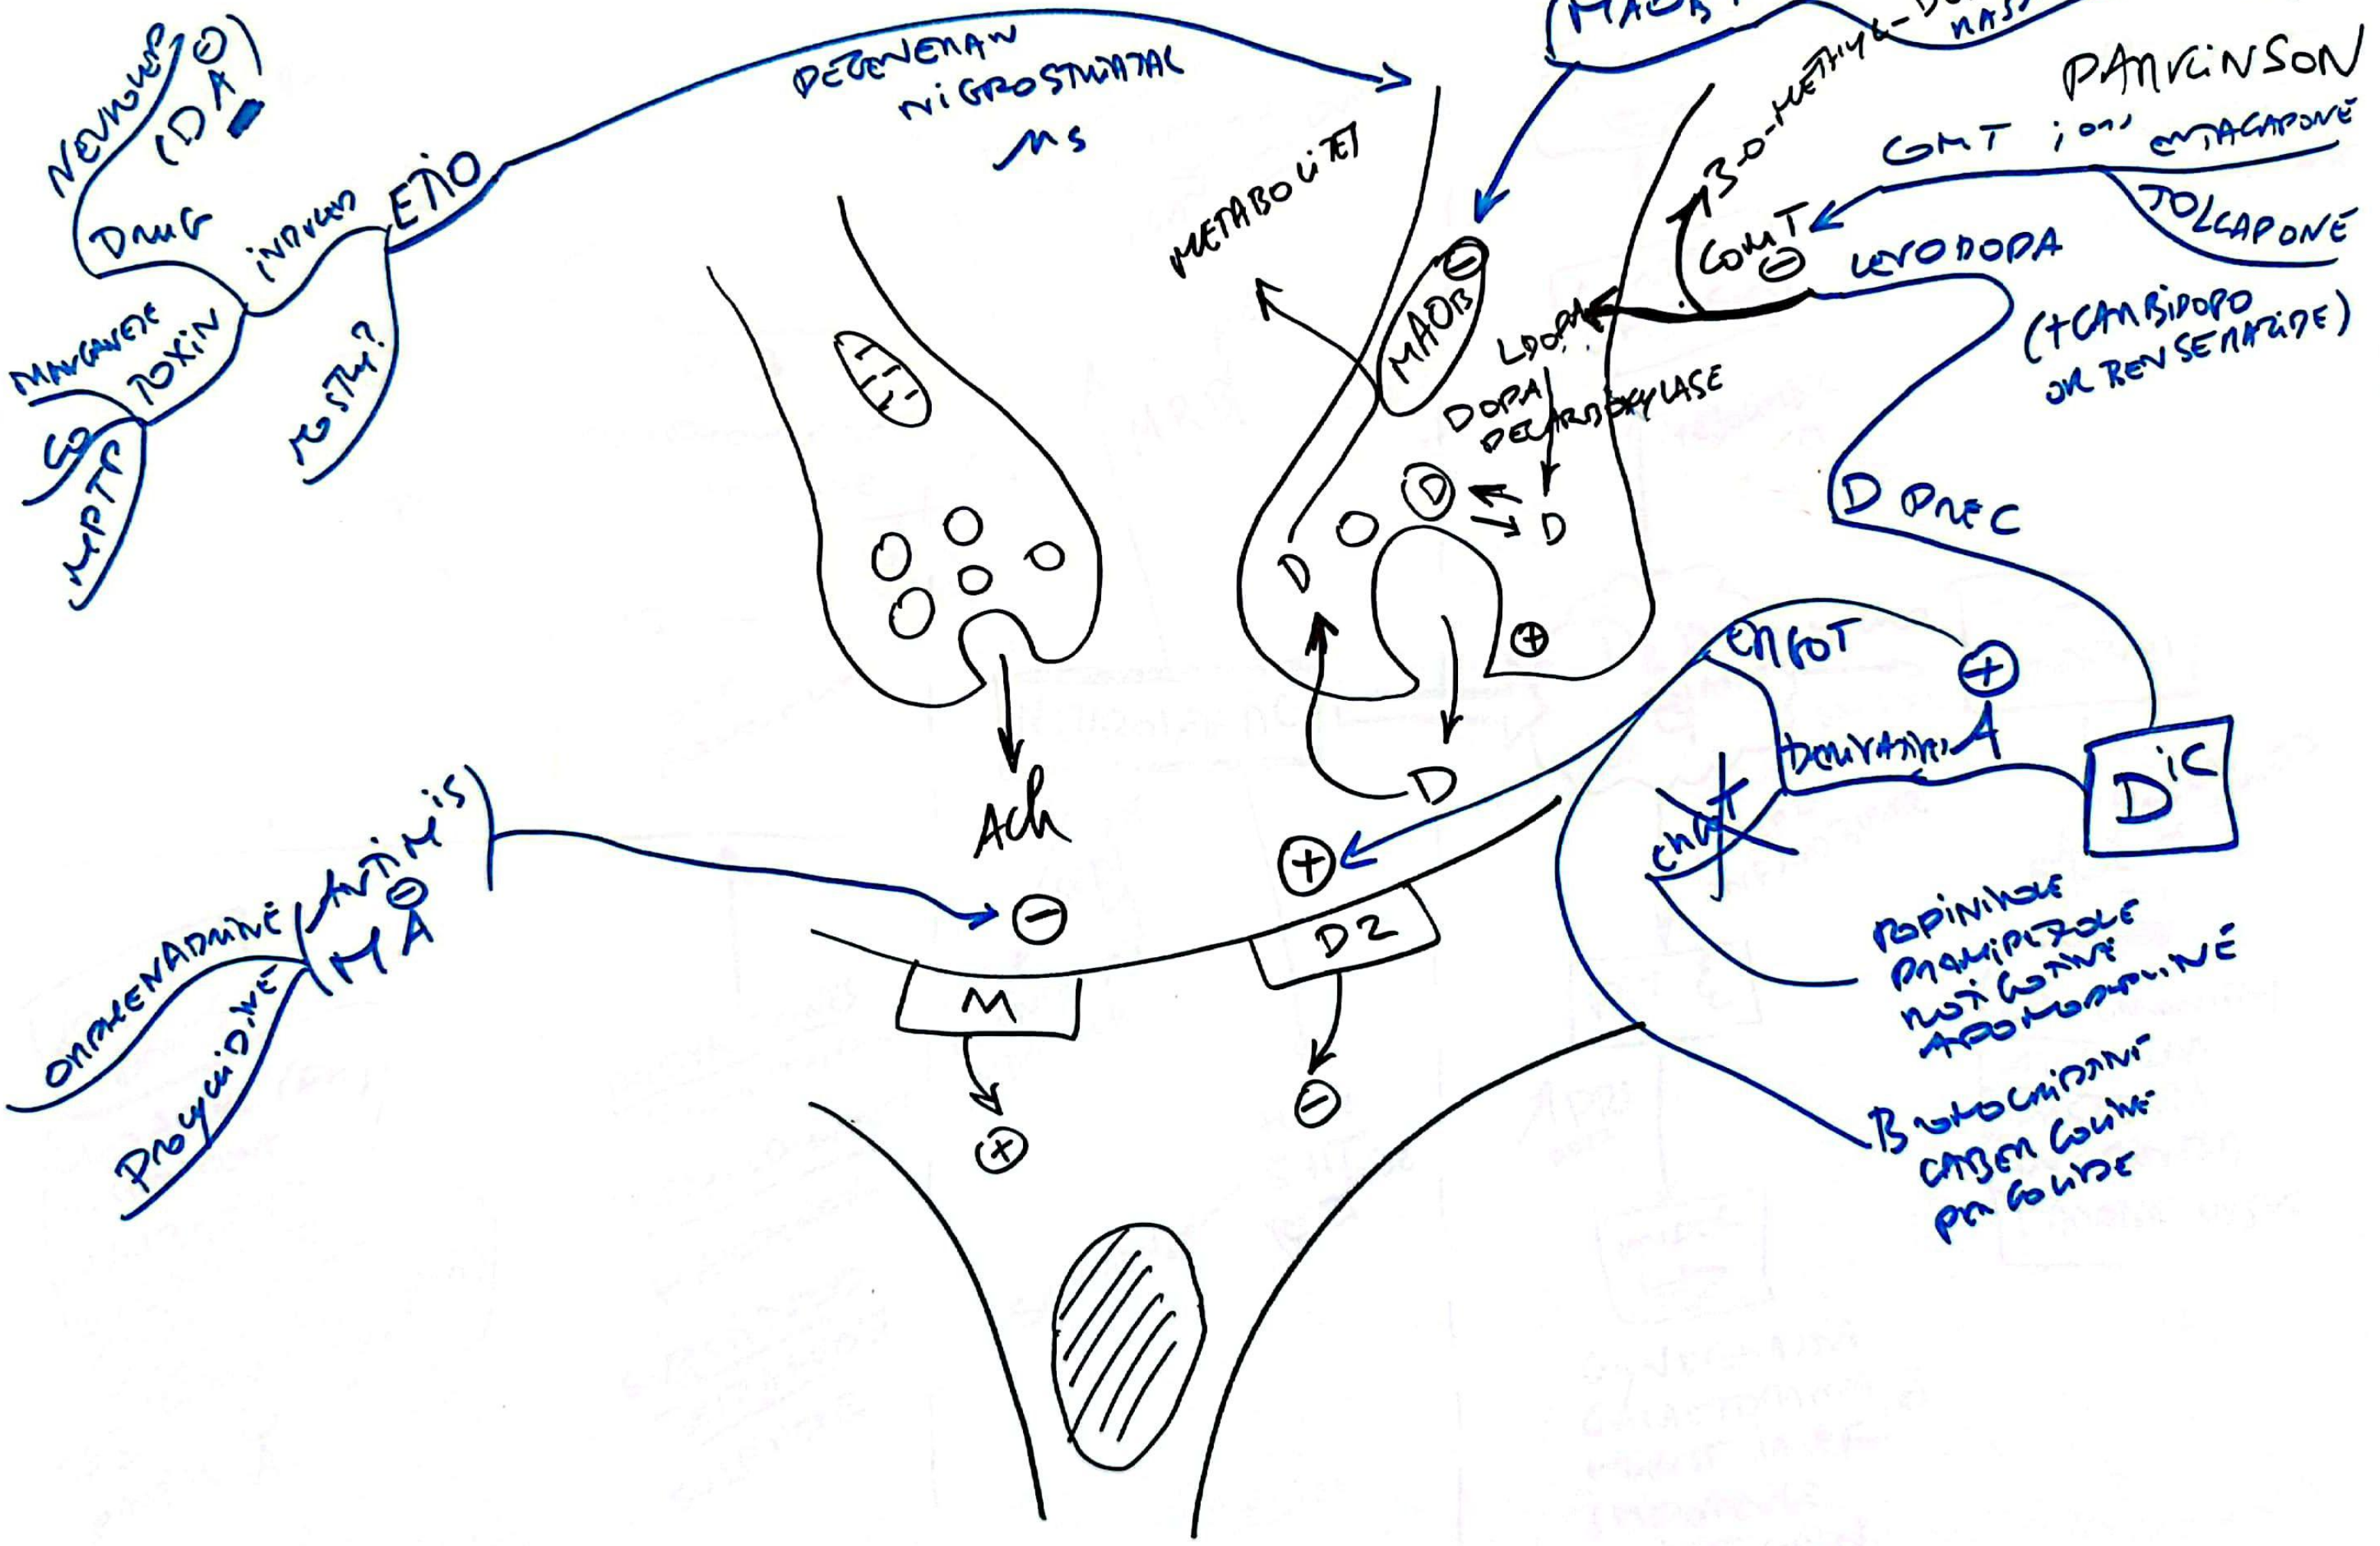 PARKINSON
NEUROLEP
(DA)
DRUG
INDUCED
ETIO
TOXIN
MANGANESE
CO
MPTP
DEGENERAN
NIGROSTRIATAL
NS
METABOLITES
MAOB
3-O-METHYL-DO
COMT
COMT
ENTACAPONE
TOLCAPONE
LEVODOPA
(+CARBIDOPO
OR BENSERAZIDE)
LDOPA
DOPA
DECARBOXYLASE
D
D
D
D
D PREC
ERGOT
DERIVATIVES
A
ERGOT
DIC
ROPINIROLE
PRAMIPEXOLE
ROTIGOTINE
APOMORPHINE
BROMOCRIPTINE
CABERGOLINE
PERGOLIDE
Ach
D2
M
ANTI Mis)
MA
ORPHENADRINE
PROCYCLIDINE